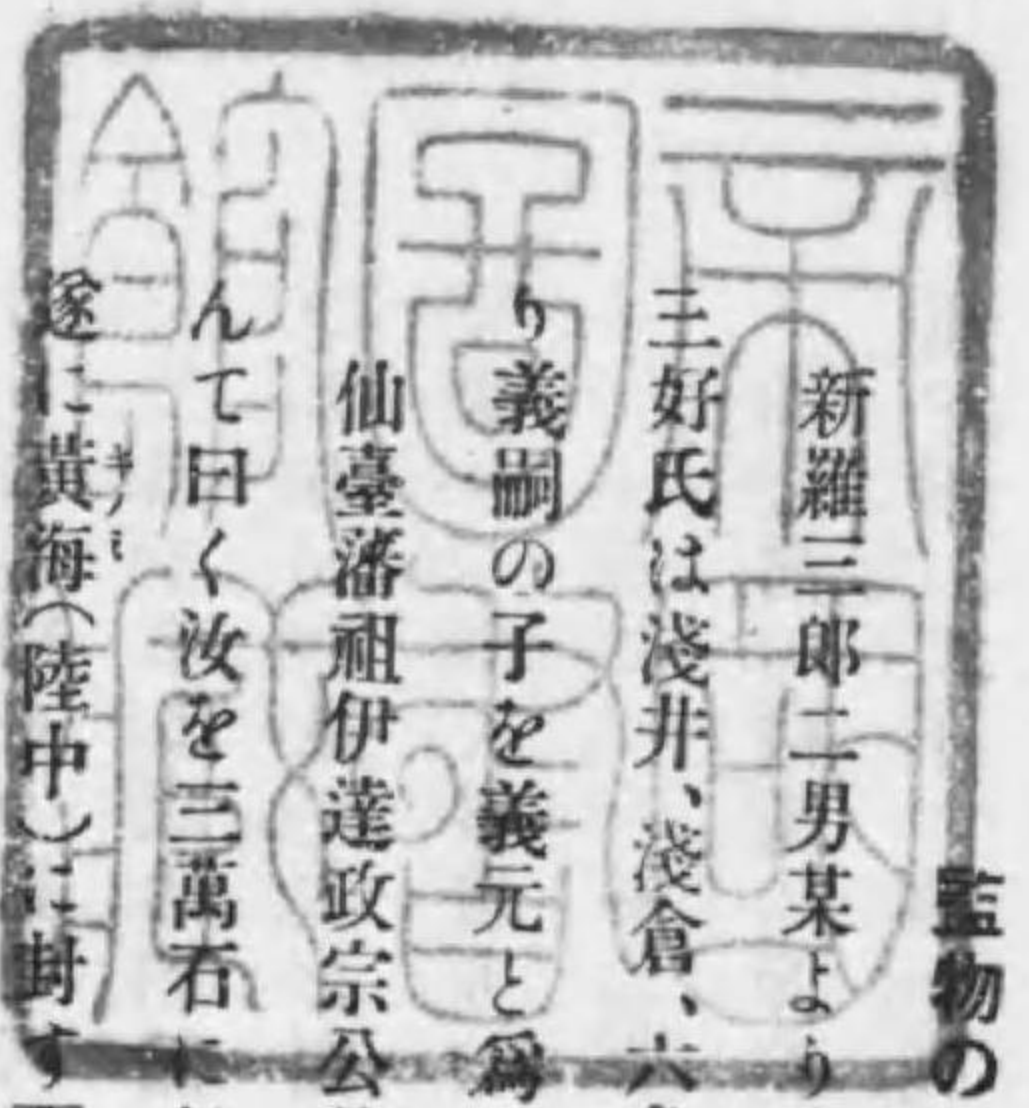 監物の
新羅三郎二男某より
三好氏は淺井、淺倉、六
り義嗣の子を義元と爲
仙臺藩祖伊達政宗公
んて曰く汝を三萬石に
遂に黃海(陸中)に封す